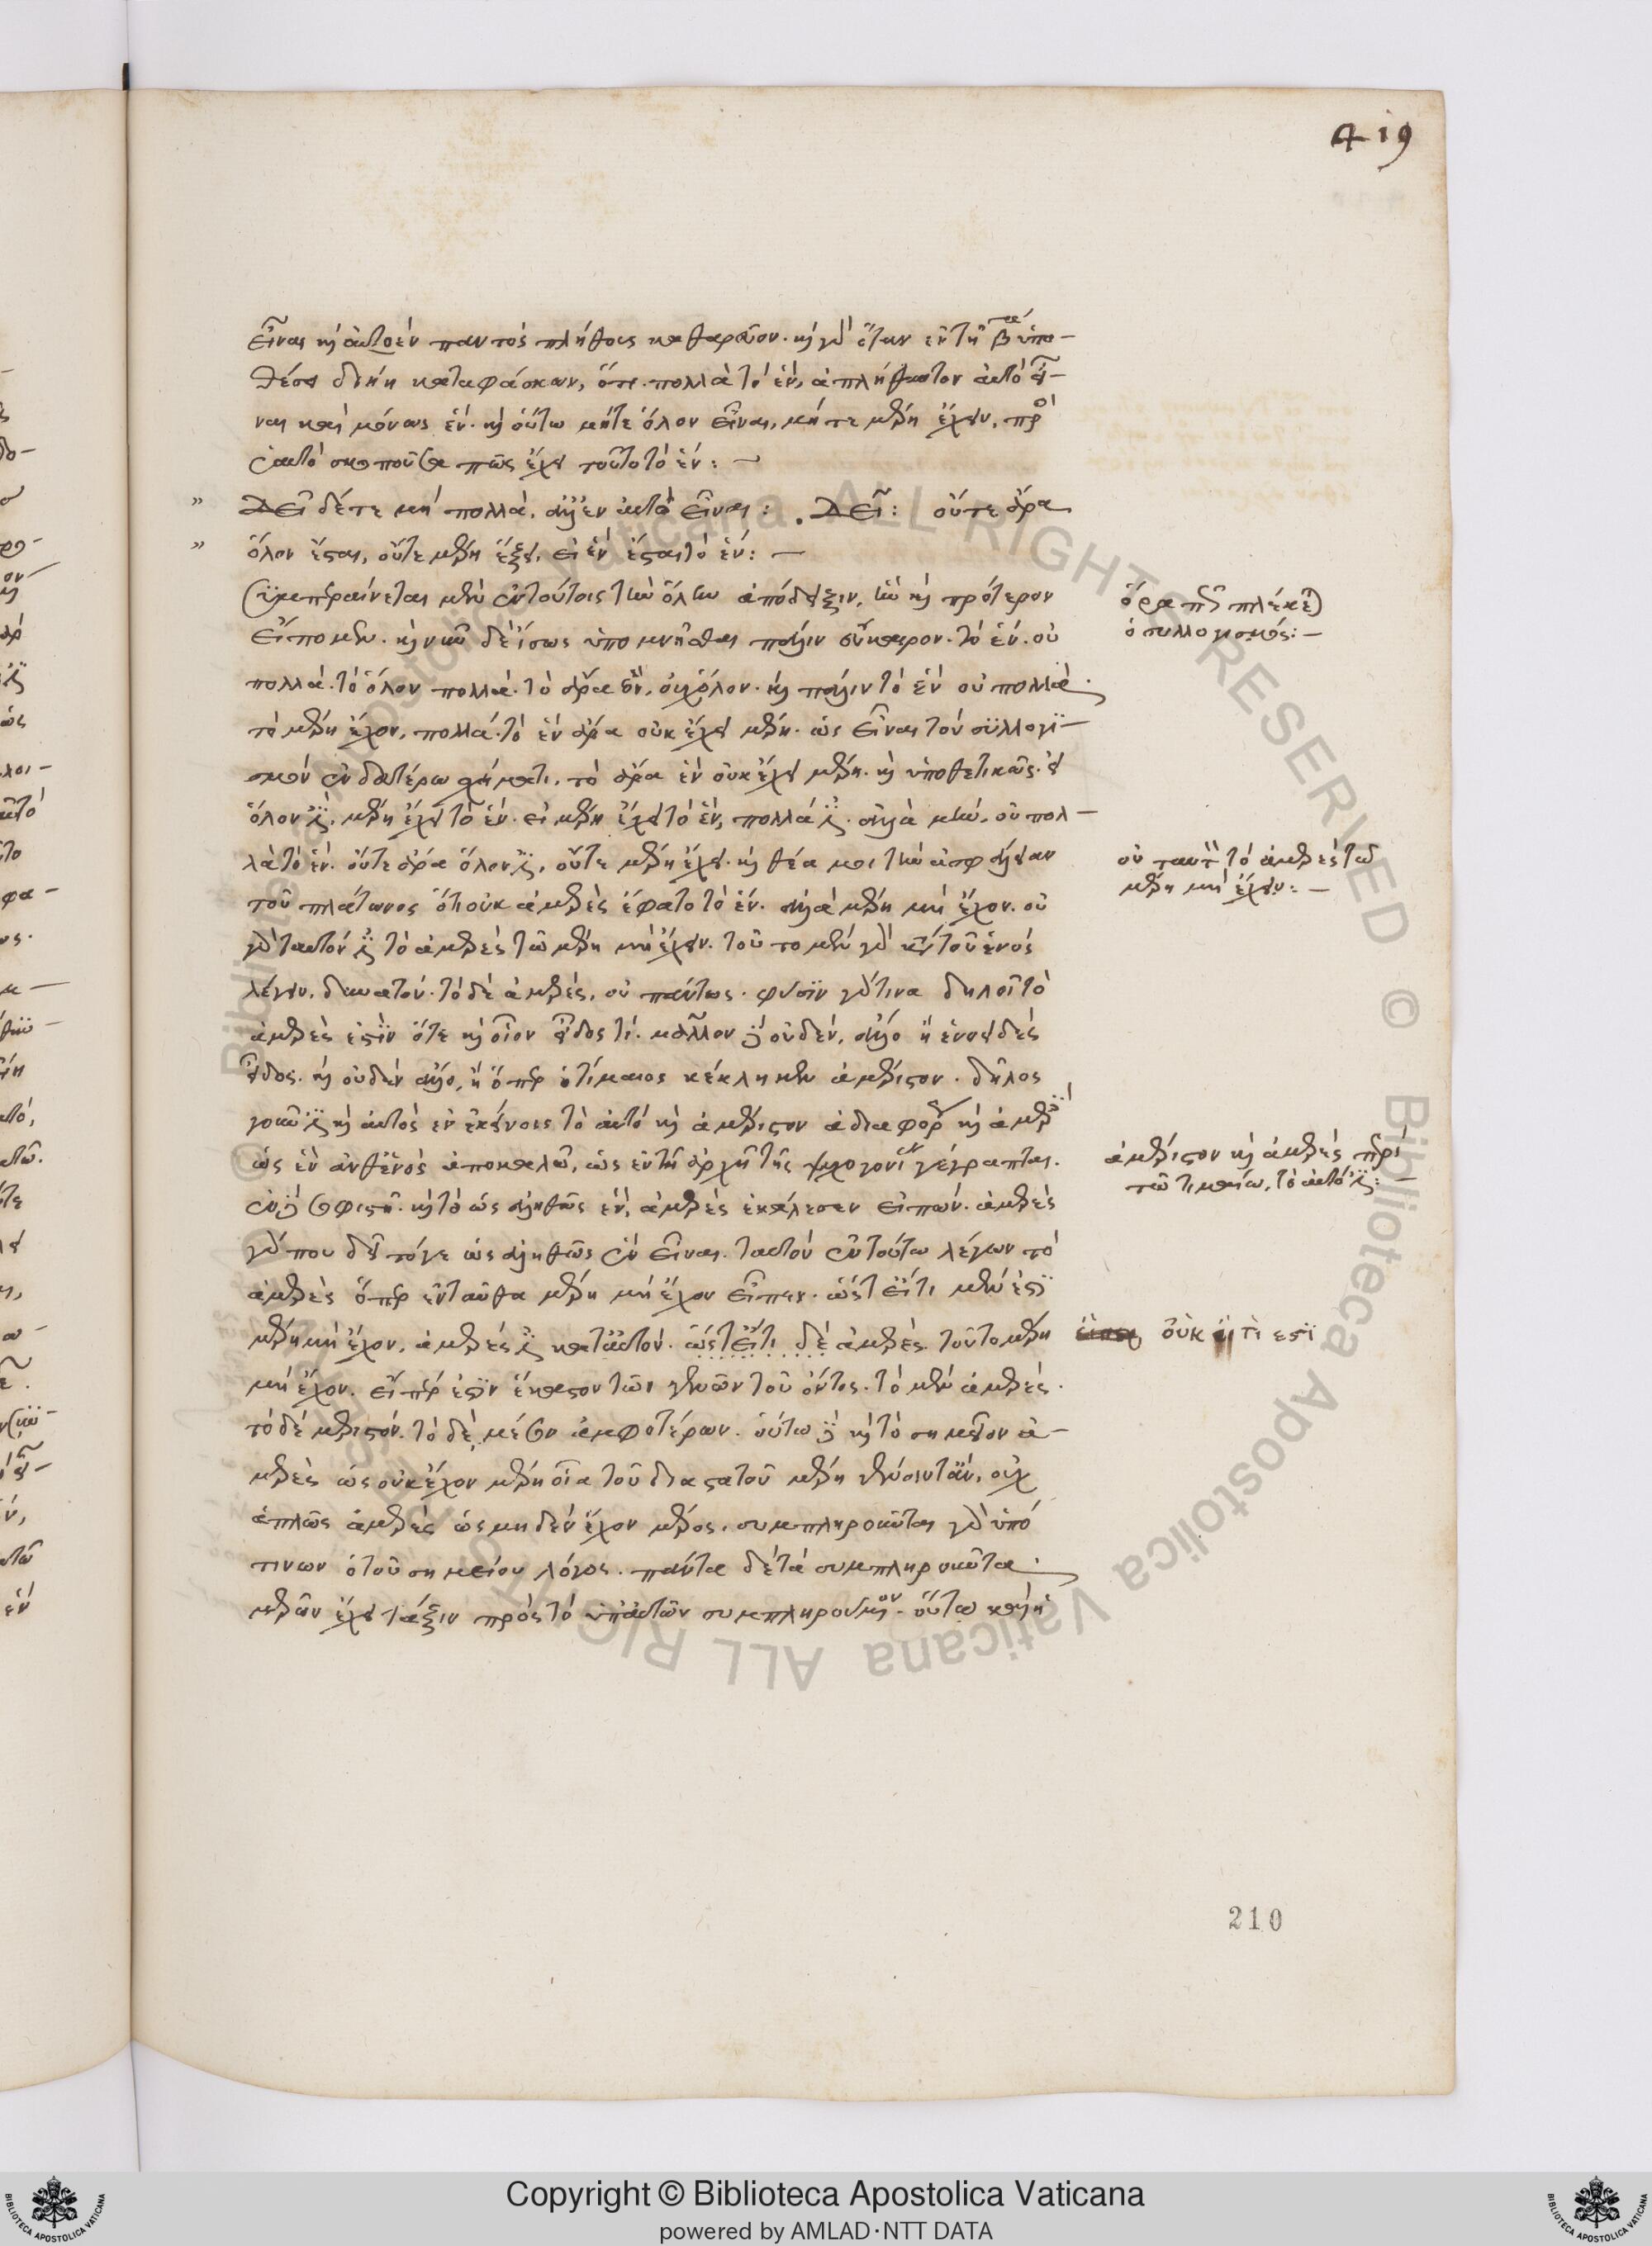 419
εἶναι καὶ αὐτοὲν παντὸς πλήθους καθαρεῦον. καὶ γὰρ ὅταν ἐν τῇ βα ὑπο-
θέσει δεικνύῃ καταφάσκων, ὅτι πολλὰ τὸ ἕν, ἀπλήθυντον αὐτὸ εἶ-
ναι καὶ μόνως ἕν. καὶ οὕτω μήτε ὅλον εἶναι, μήτε μέρη ἔχειν, πρὸ
ἑαυτὸ σκοποῦσα πῶς ἔχει τοῦτο τὸ ἕν: –
" Δεῖ δέ γε μὴ πολλὰ, ἀλλ' ἓν αὐτὸ εἶναι: . Δεῖ: οὔτε ἄρα
" ὅλον ἔσται, οὔτε μέρη ἕξει, εἰ ἓν ἔσται τὸ ἕν: –
Συμπεραίνεται μὲν ἐν τούτοις τὴν ὅλην ἀπόδειξιν, ἣν καὶ πρότερον
εἴπομεν. καὶ νῦν δὲ ἴσως ὑπομνῆσαι πάλιν εὔκαιρον. τὸ ἕν. οὐ
πολλά. τὸ ὅλον πολλά. τὸ ἄρα ἓν, οὐχ ὅλον. καὶ πάλιν τὸ ἓν οὐ πολλά.
τὸ μέρη ἔχον, πολλά. τὸ ἓν ἄρα οὐκ ἔχει μέρη. ὡς εἶναι τὸν συλλογι-
σμὸν ἐν δευτέρῳ σχήματι. τὸ ἄρα ἓν οὐκ ἔχει μέρη. καὶ ὑποθετικῶς. εἰ
ὅλον ἐστὶ, μέρη ἔχει τὸ ἕν. εἰ μέρη ἔχει τὸ ἓν, πολλά ἐστι. ἀλλὰ μὴν, οὐ πολ-
λὰ τὸ ἕν. οὔτε ἄρα ὅλον ἐστὶ, οὔτε μέρη ἔχει. καὶ θέα μοι τὴν ἀσφάλειαν
τοῦ πλάτωνος ὅτι οὐκ ἀμερὲς ἔφατο τὸ ἕν. ἀλλὰ μέρη μὴ ἔχον. οὐ
γὰρ ταυτόν ἐστι τὸ ἀμερὲς τῷ μέρη μὴ ἔχειν. τοῦτο μὲν γὰρ κατὰ τοῦ ἑνὸς
λέγειν, δυνατόν. τὸ δὲ ἀμερές, οὐ πάντως. φύσιν γάρ τινα δηλοῖ τὸ
ἀμερές ἐστιν ὅτε καὶ οἷον εἶδος τί. μᾶλλον δὲ οὐδὲν, ἄλλο ἢ ἑνοειδὲς
εἶδος. καὶ οὐδὲν ἄλλο, ἢ ὅπερ ὁ τίμαιος κέκληκεν ἀμέριστον. δῆλος
γοῦν ἐστι καὶ αὐτὸς ἐν ἐκείνοις τὸ αὐτὸ καὶ ἀμέριστον ἀδιαφόρως καὶ ἀμερὲς
ὡς ἓν ἀνθενὸς ἀποκαλῶν, ὡς ἐν τῇ ἀρχῇ τῆς ψυχογονίας γέγραπται.
ἐν δὲ σοφιστῇ. καὶ τὸ ὡς ἀληθῶς ἕν, ἀμερὲς ἐκάλεσεν εἰπὼν. ἀμερὲς
γάρ που δεῖ τό γε ὡς ἀληθῶς ἓν εἶναι. ταυτὸν ἐν τούτῳ λέγων τὸ
ἀμερὲς ὅπερ ἐνταῦθα μέρη μὴ ἔχον εἶπεν. ὥστ' εἴ τι μὲν ἐστι
μέρη μὴ ἔχον, ἀμερές ἐστι κατ' αὐτόν. ὥστ' εἴ τι δὲ ἀμερὲς τοῦτο μέρη
μὴ ἔχον. εἴπερ ἐστὶν ἕκαστον τῶν γενῶν τοῦ ὄντος. τὸ μὲν ἀμερές.
τὸ δὲ μεριστόν. τὸ δὲ, μέσον ἀμφοτέρων. οὕτω δὲ καὶ τὸ σημεῖον ἀ-
μερὲς ὡς οὐκ ἔχον μέρη οἷα τοῦ διαστατοῦ μέρη γένοιντ' ἄν, οὐχ
ἁπλῶς ἀμερὲς ὡς μηδὲν ἔχον μέρος. συμπληροῦται γὰρ ὑπό
τινων ὁ τοῦ σημείου λόγος. πάντα δὲ τὰ συμπληροῦντα
μερῶν ἔχει τάξιν πρὸς τὸ ὑπ' αὐτῶν συμπληρούμενον. οὕτω καὶ ἡ
ὅρα πῶς πλέκεται
ὁ συλλογισμός: –
οὐ ταυτὸν τὸ ἀμερὲς τῷ
μέρη μὴ ἔχειν: –
ἀμέριστον καὶ ἀμερὲς παρὰ
τῷ τιμαίῳ, τὸ αὐτό ἐστι: –
οὐκ εἴ τι ἐστι
210
Copyright © Biblioteca Apostolica Vaticana
powered by AMLAD·NTT DATA